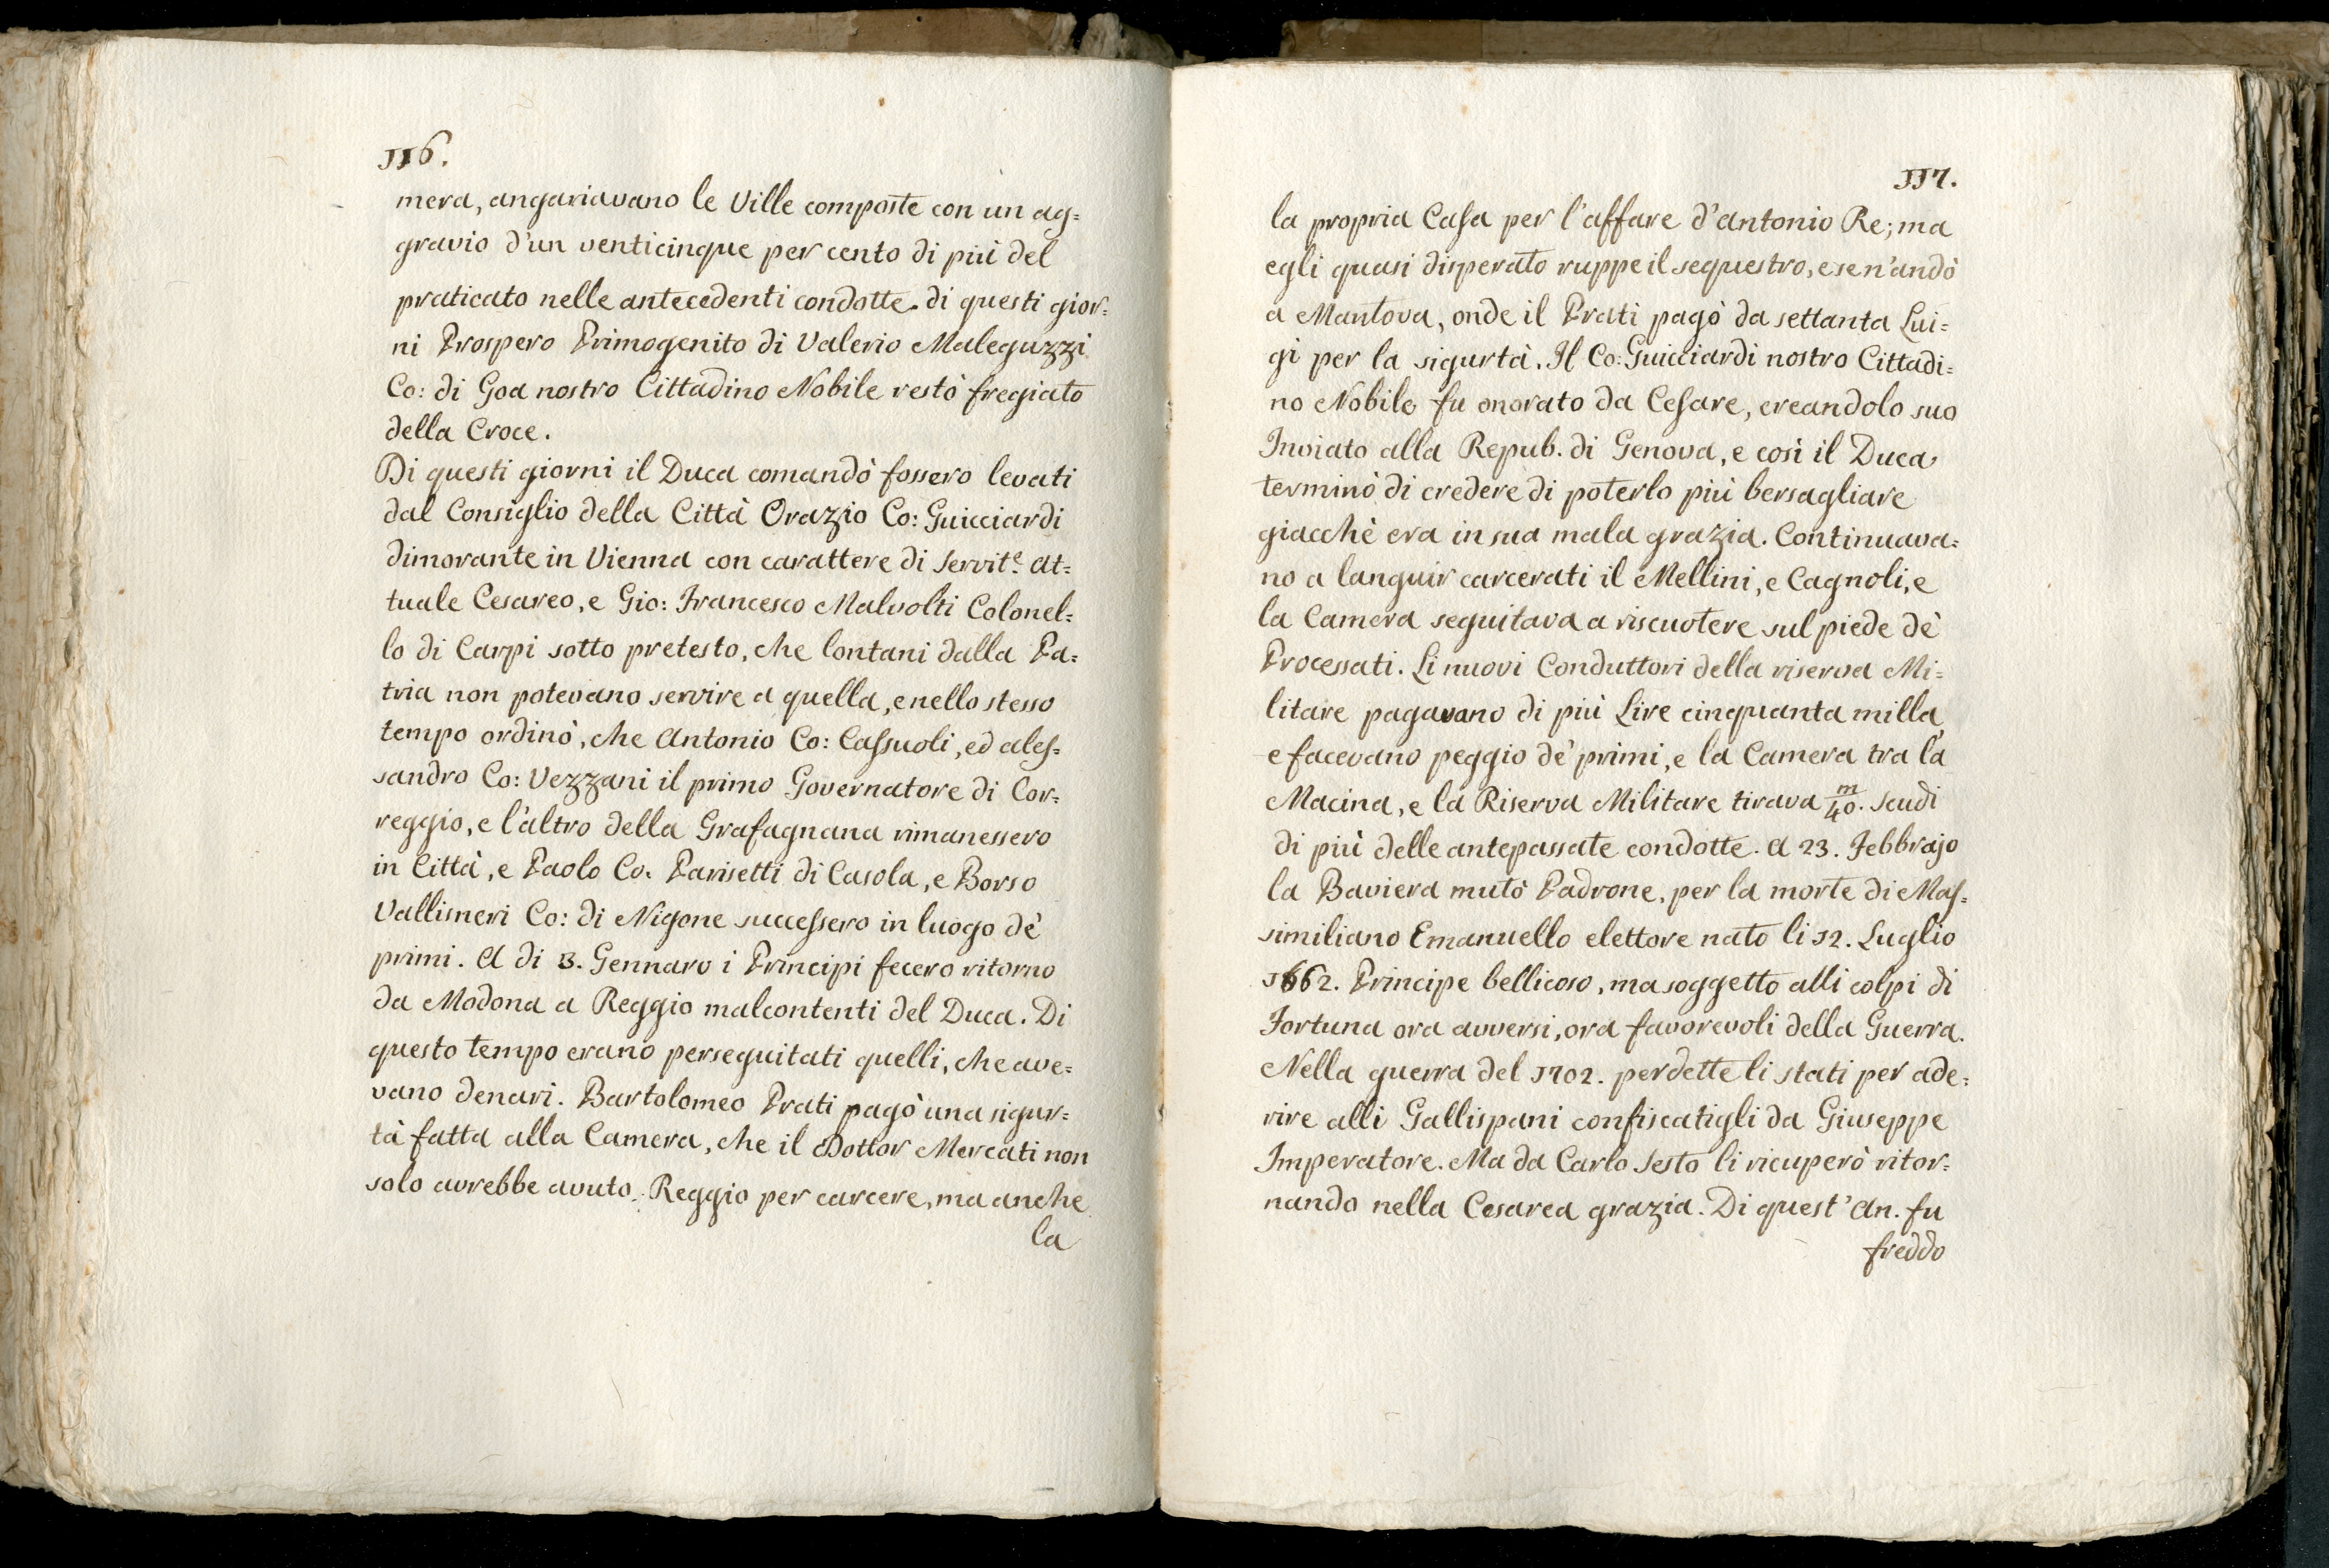 116.
mera, angariavano le Ville composte con un ag=
gravio d'un venticinque per cento di più del
praticato nelle antecedenti condotte. di questi gior=
ni Prospero Primogenito di Valerio Maleguzzi
Co: di Goa nostro Cittadino Nobile restò fregiato
della Croce.
Di questi giorni il Duca comandò fossero levati
dal Consiglio della Città Orazio Co: Guicciardi
dimorante in Vienna con carattere di Servit.e At=
tuale Cesareo, e Gio: Francesco Malvolti Colonel=
lo di Carpi sotto pretesto, che lontani dalla Pa=
tria non potevano servire a quella, e nello stesso
tempo ordinò, che Antonio Co: Cassuoli, ed ales=
sandro Co: Vezzani il primo Governatore di Cor=
reggio, e l'altro della Grafagnana rimanessero
in Città, e Paolo Co. Parisetti di Casola, e Borso
Vallisneri Co: di Nigone successero in luogo de'
primi. A di 13. Gennaro i Principi fecero ritorno
da Modona a Reggio malcontenti del Duca. Di
questo tempo erano perseguitati quelli, che ave=
vano denari. Bartolomeo Prati pagò una sigur=
tà fatta alla Camera, che il Dottor Mercati non
solo avrebbe avuto Reggio per carcere, ma anche
la
117.
la propria Casa per l'affare d'antonio Re; ma
egli quasi disperato ruppe il sequestro, e se n'andò
a Mantova, onde il Prati pagò da settanta Lui=
gi per la sigurtà. Il Co: Guicciardi nostro Cittadi=
no Nobile fu onorato da Cesare, creandolo suo
Inviato alla Repub. di Genova, e così il Duca
terminò di credere di poterlo più bersagliare
giacchè era in sua mala grazia. Continuava=
no a languir carcerati il Mellini, e Cagnoli, e
la Camera seguitava a riscuotere sul piede de'
Processati. Li nuovi Conduttori della riserva Mi=
litare pagavano di più Lire cinquanta milla,
e facevano peggio de' primi, e la Camera tra la
Macina, e la Riserva Militare tirava m/40. Scudi
di più delle antepassate condotte. A 23. Febbrajo
la Baviera mutò Padrone, per la morte di Mas=
similiano Emanuello elettore nato li 12. Luglio
1662. Principe bellicoso, ma soggetto alli colpi di
Fortuna ora avversi, ora favorevoli della Guerra.
Nella guerra del 1702. perdette li stati per ade=
rire alli Gallispani confiscatigli da Giuseppe
Imperatore. Ma da Carlo Sesto li ricuperò ritor=
nando nella Cesarea grazia. Di quest' An. fu
freddo